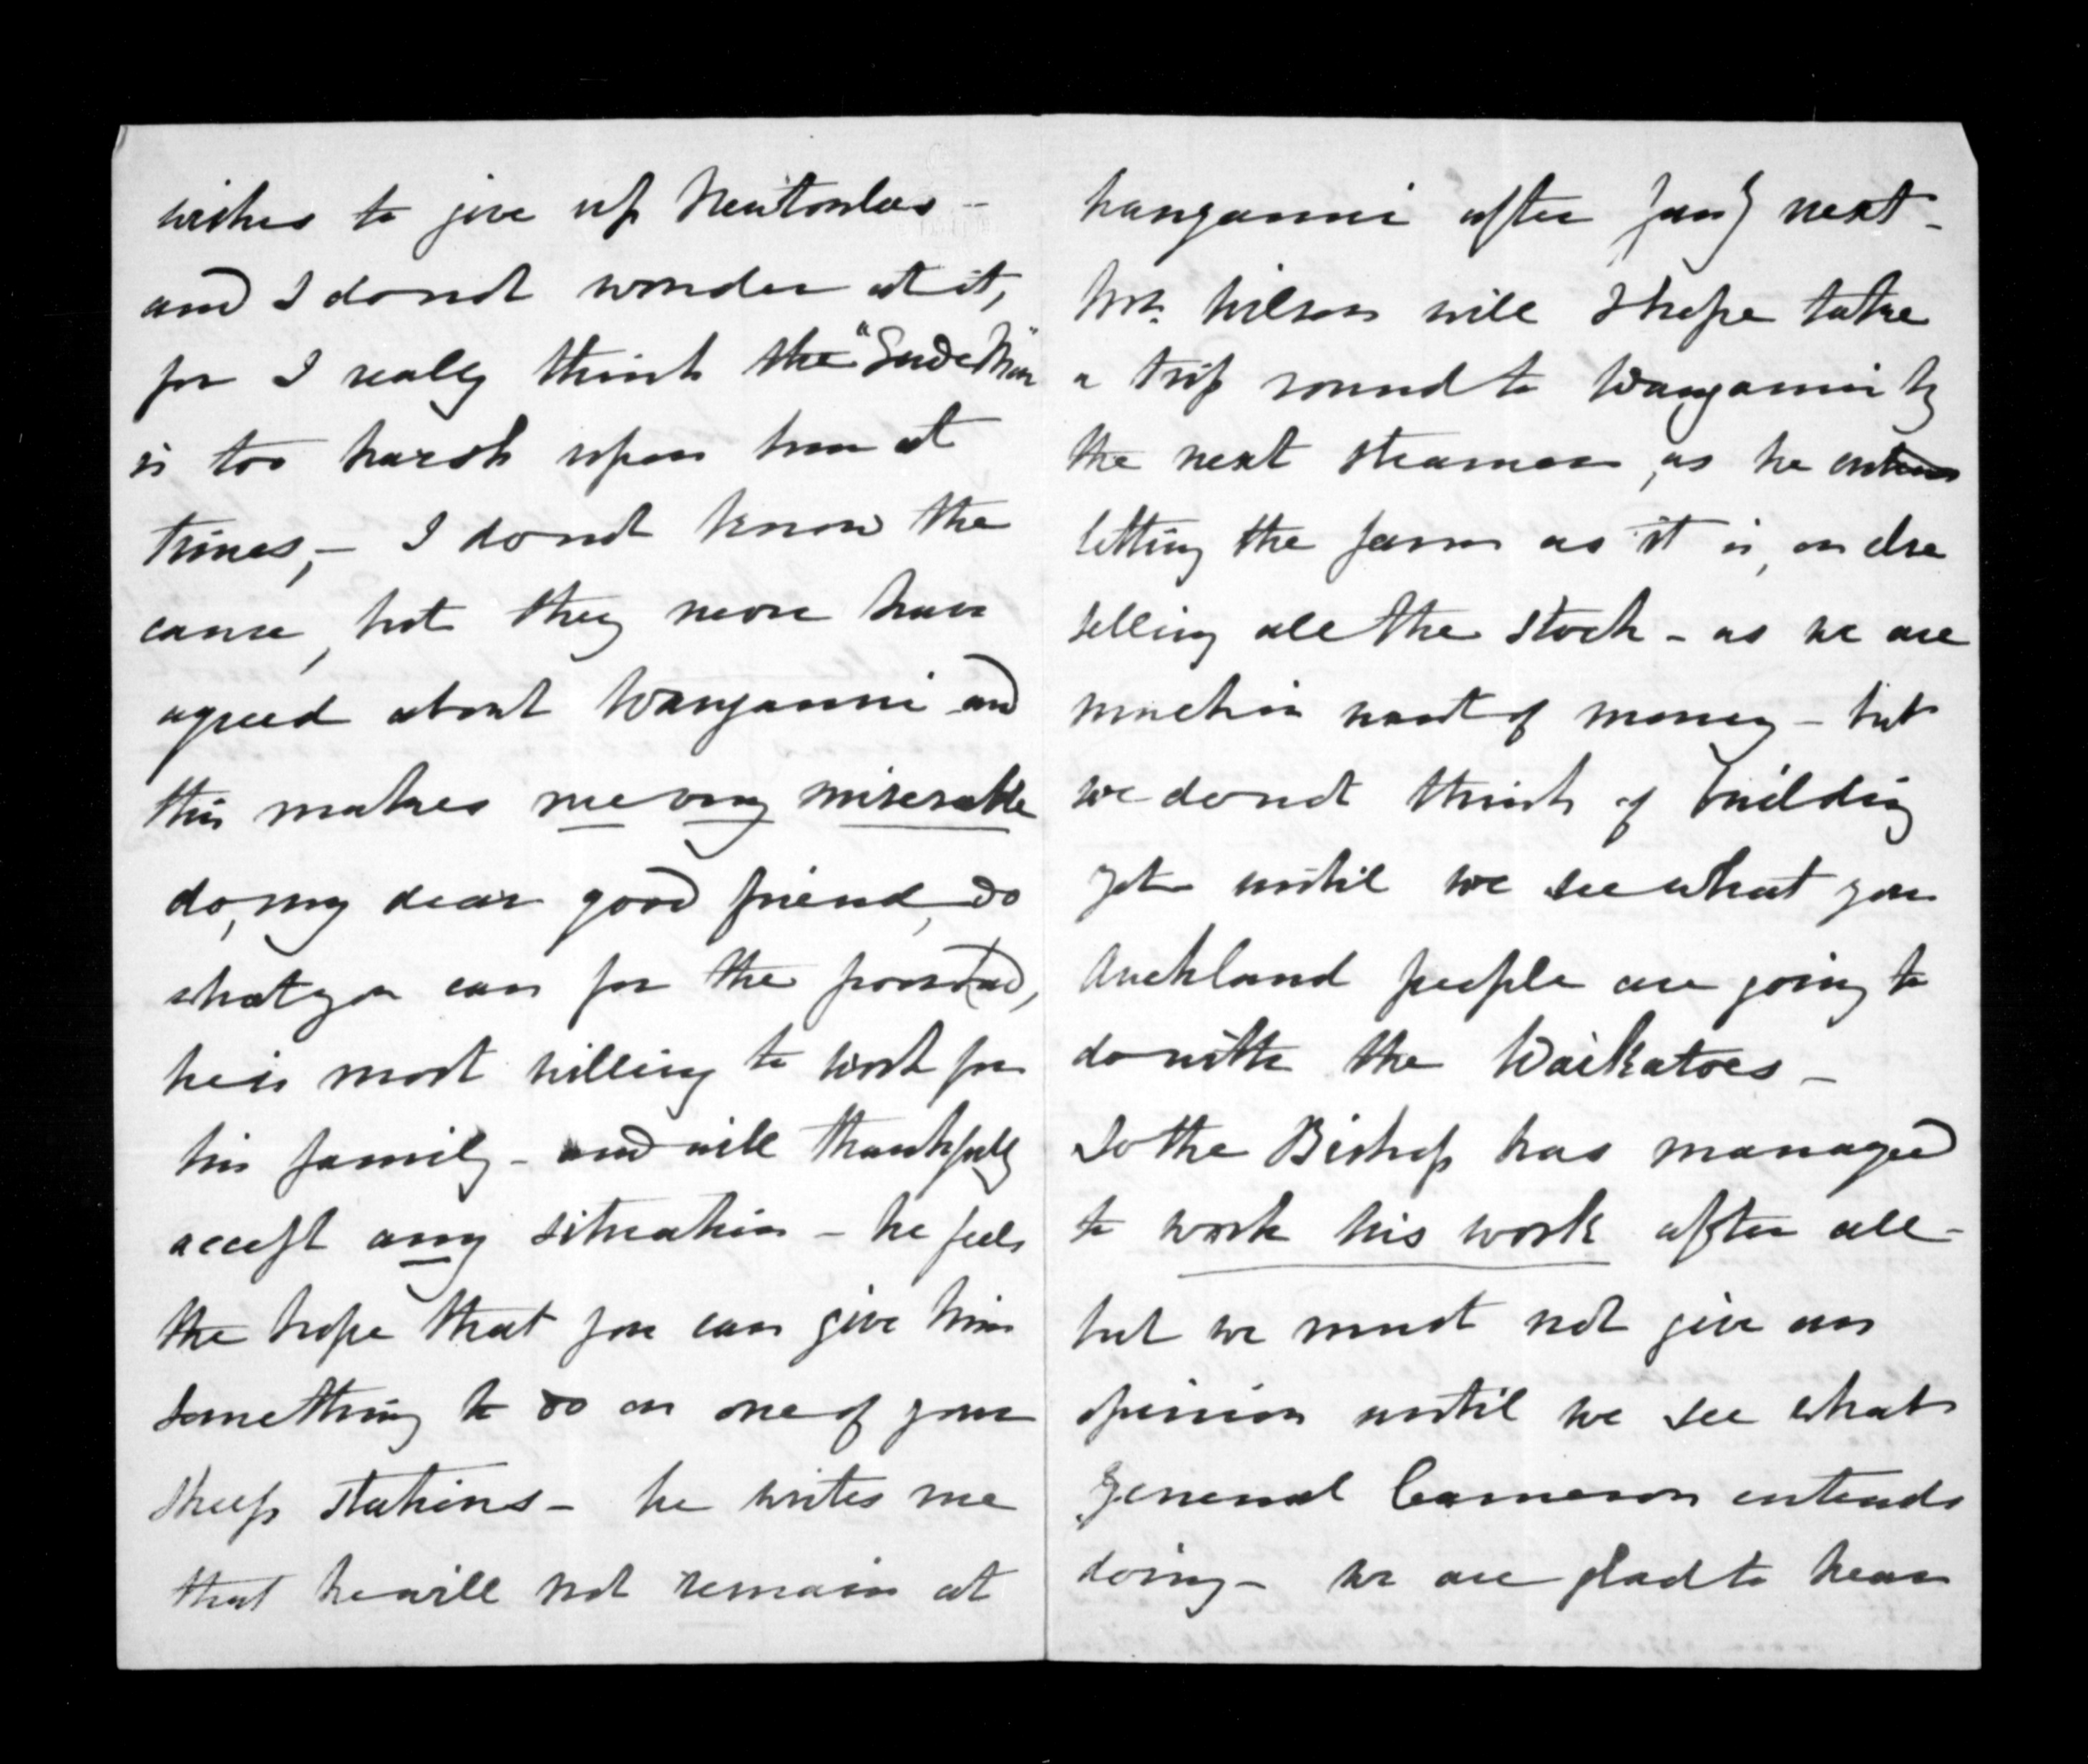 wishes to give up Newtonlees -
and I do not wonder at it,
for I really think the "Gude Man"
is too harsh upon him at
times, - I do not know the
cause, but they never have
agreed about Wanganui and
this makes me very miserable
do, my dear good friend, do
what you can for the poor lad,
he is most willing to work for
his family - and will thankfully
accept any situation - he feels
the hope that you can give him
something to do on one of your
sheep stations - he writes me
that he will not remain at
Wanganui after Jany next -
Mr. Wilson will I hope take
a trip round to Wanganui by
the next steamer, as he intends
letting the farm as it is, or else
selling all the stock - as we are
much in want of money - but
we do not think of building
yet until we see what you
Auckland people are going to
do with the Waikatoes -
So the Bishop has managed
to work his work after all -
but we must not give our
opinion until we see what
General Cameron entends
doing - we are glad to hear